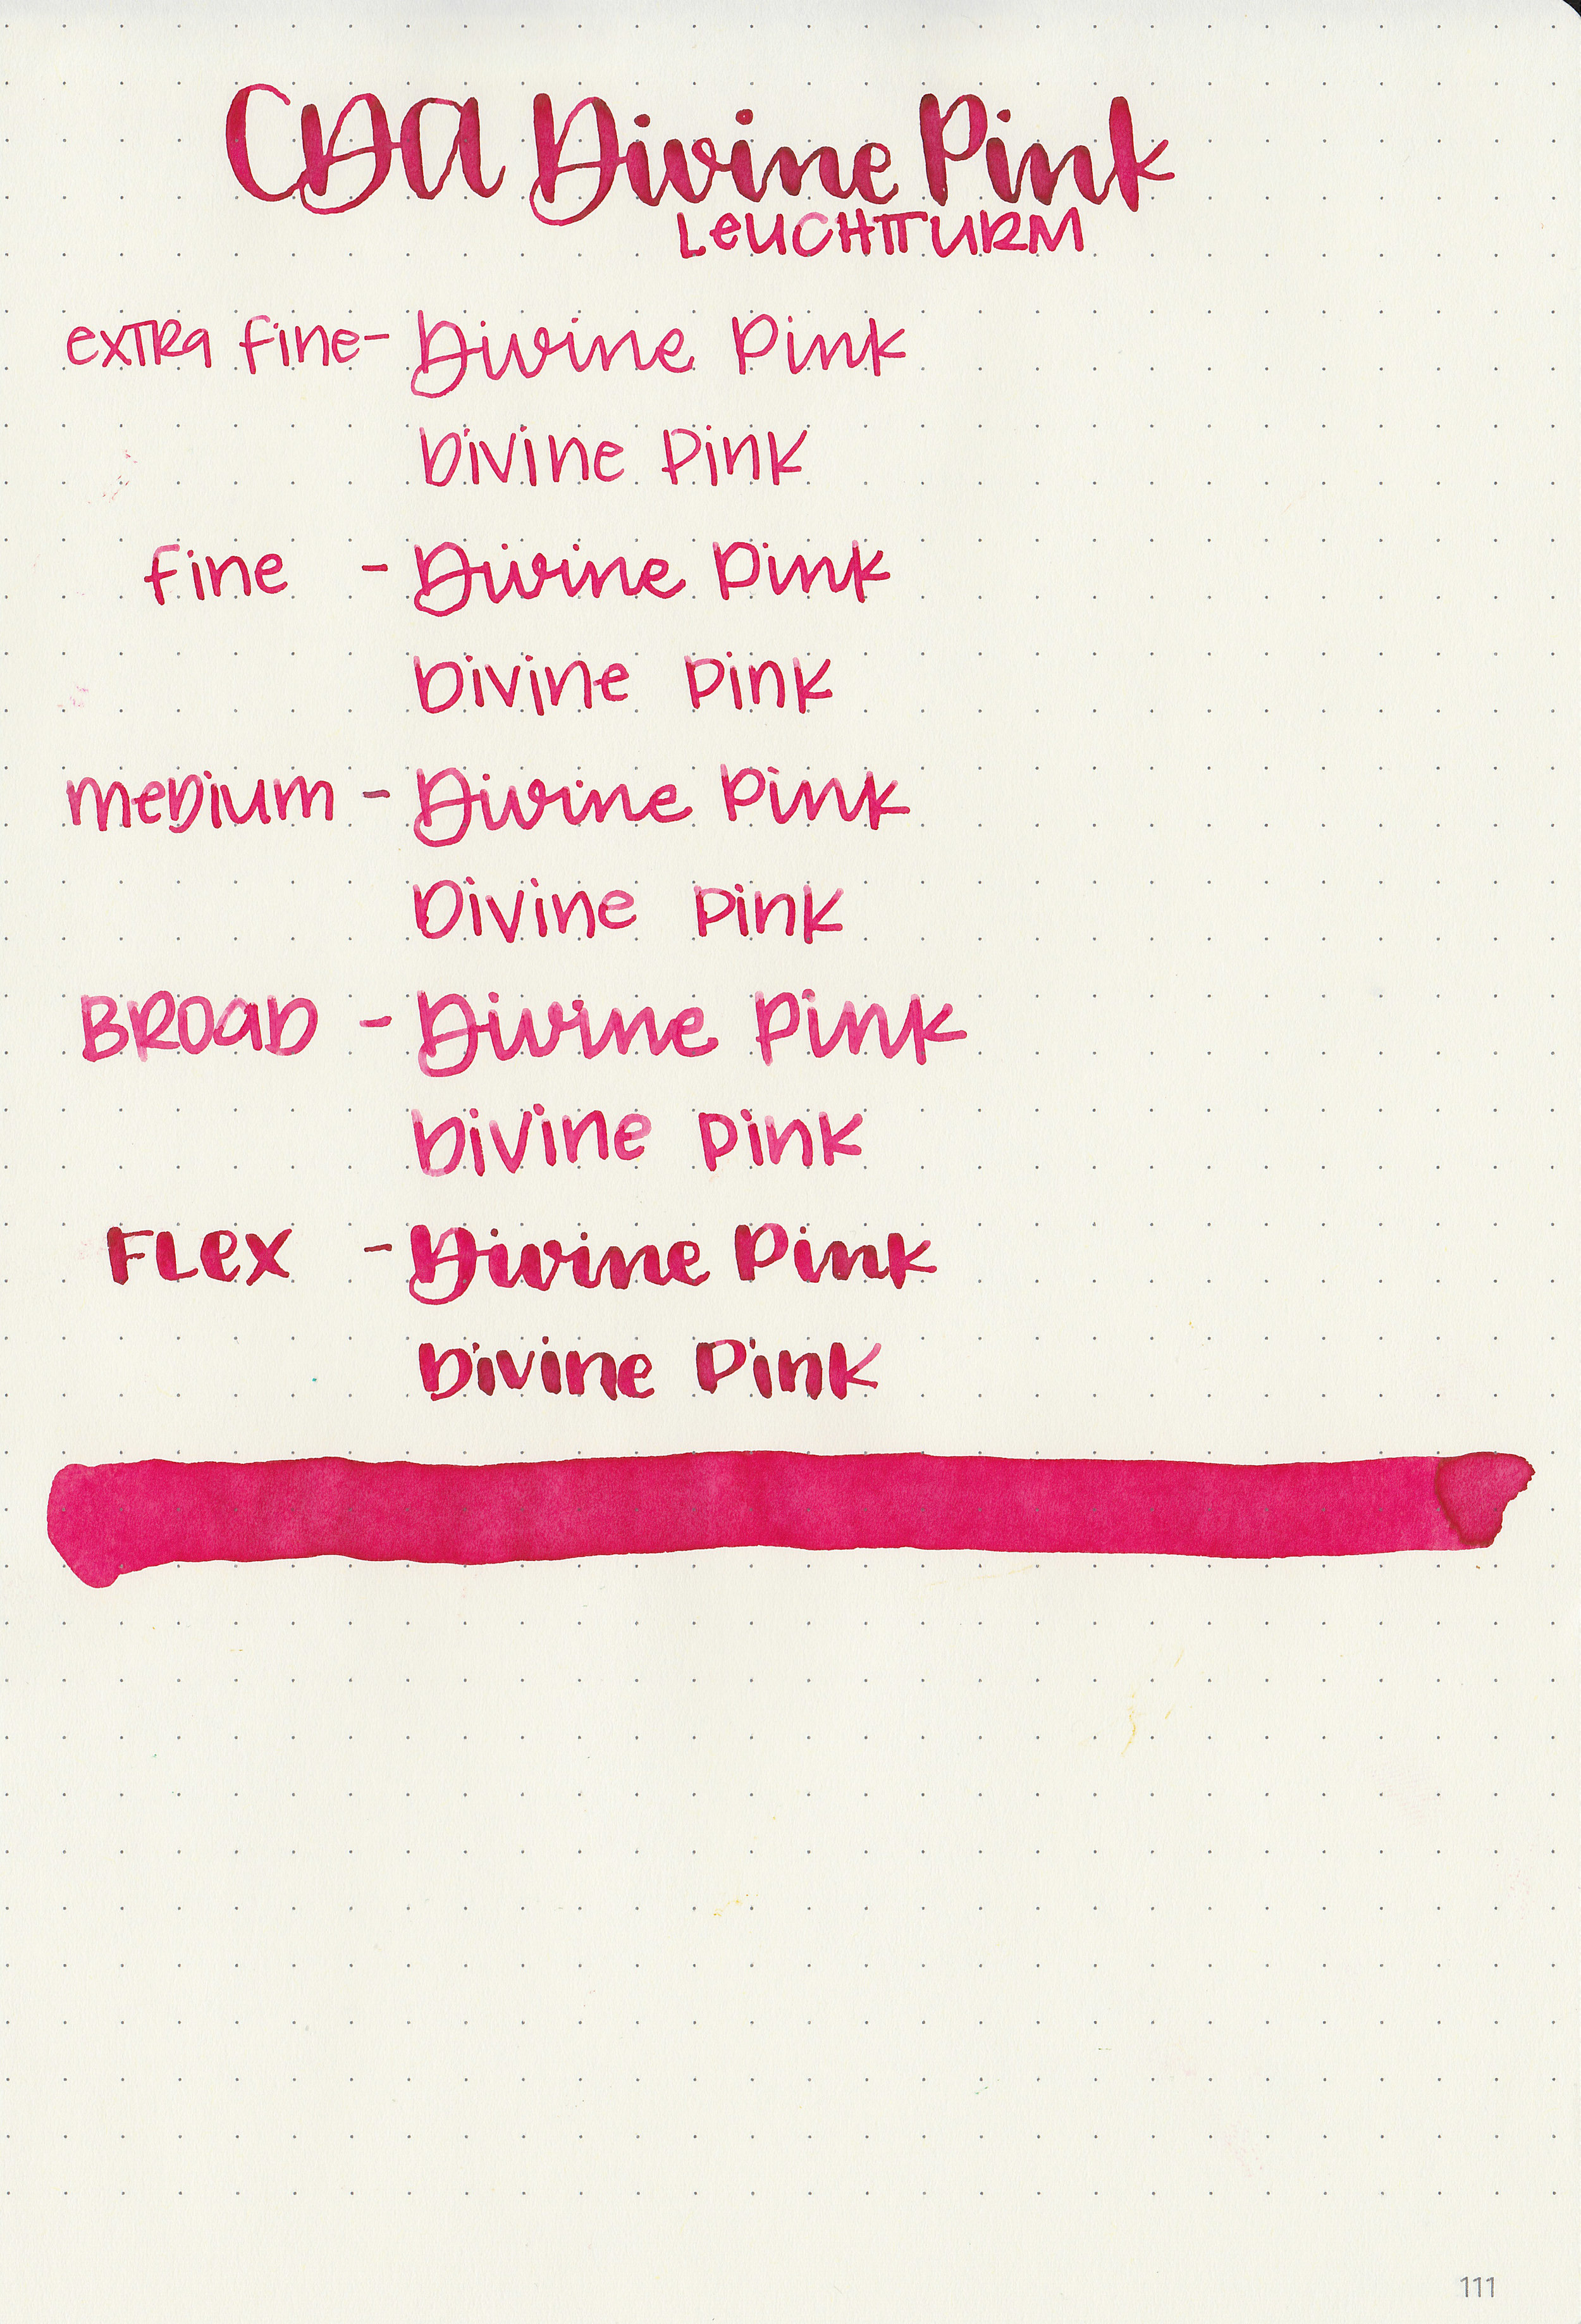 CDA Divine Pink
LeUCHTTURM
exTRa fine- Divine Pink
Divine Pink
fine - Divine Pink
Divine Pink
meDium - Divine Pink
Divine Pink
BROaD - Divine Pink
Divine Pink
FLex - Divine Pink
Divine Pink
111